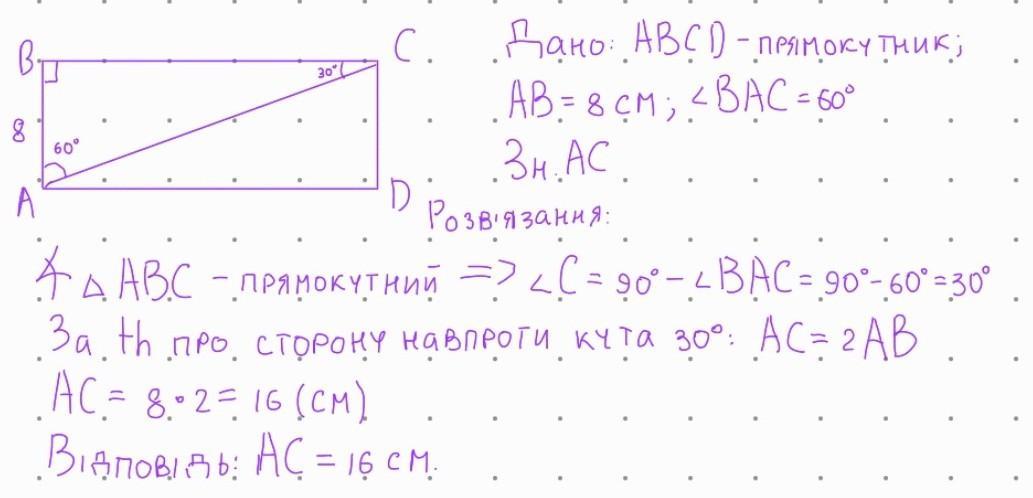 B
C
30°
8
60°
A
D
Дано: ABCD - прямокутник;
AB = 8 см; ∠BAC = 60°
Зн. AC
Розв'язання:
∢ △ ABC - прямокутний => ∠C = 90° - ∠BAC = 90° - 60° = 30°
За th про сторону навпроти кута 30°: AC = 2AB
AC = 8 • 2 = 16 (см)
Відповідь: AC = 16 см.